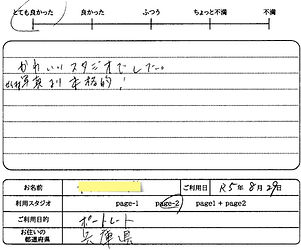 とても良かった 良かった ふつう ちょっと不満 不満
かわいいスタジオでした。
写真より本格的!
お名前 ご利用日 R5年8月29日
利用スタジオ page-1 page-2 page1+page2
ご利用目的 ポートレート
お住いの都道府県 兵庫県